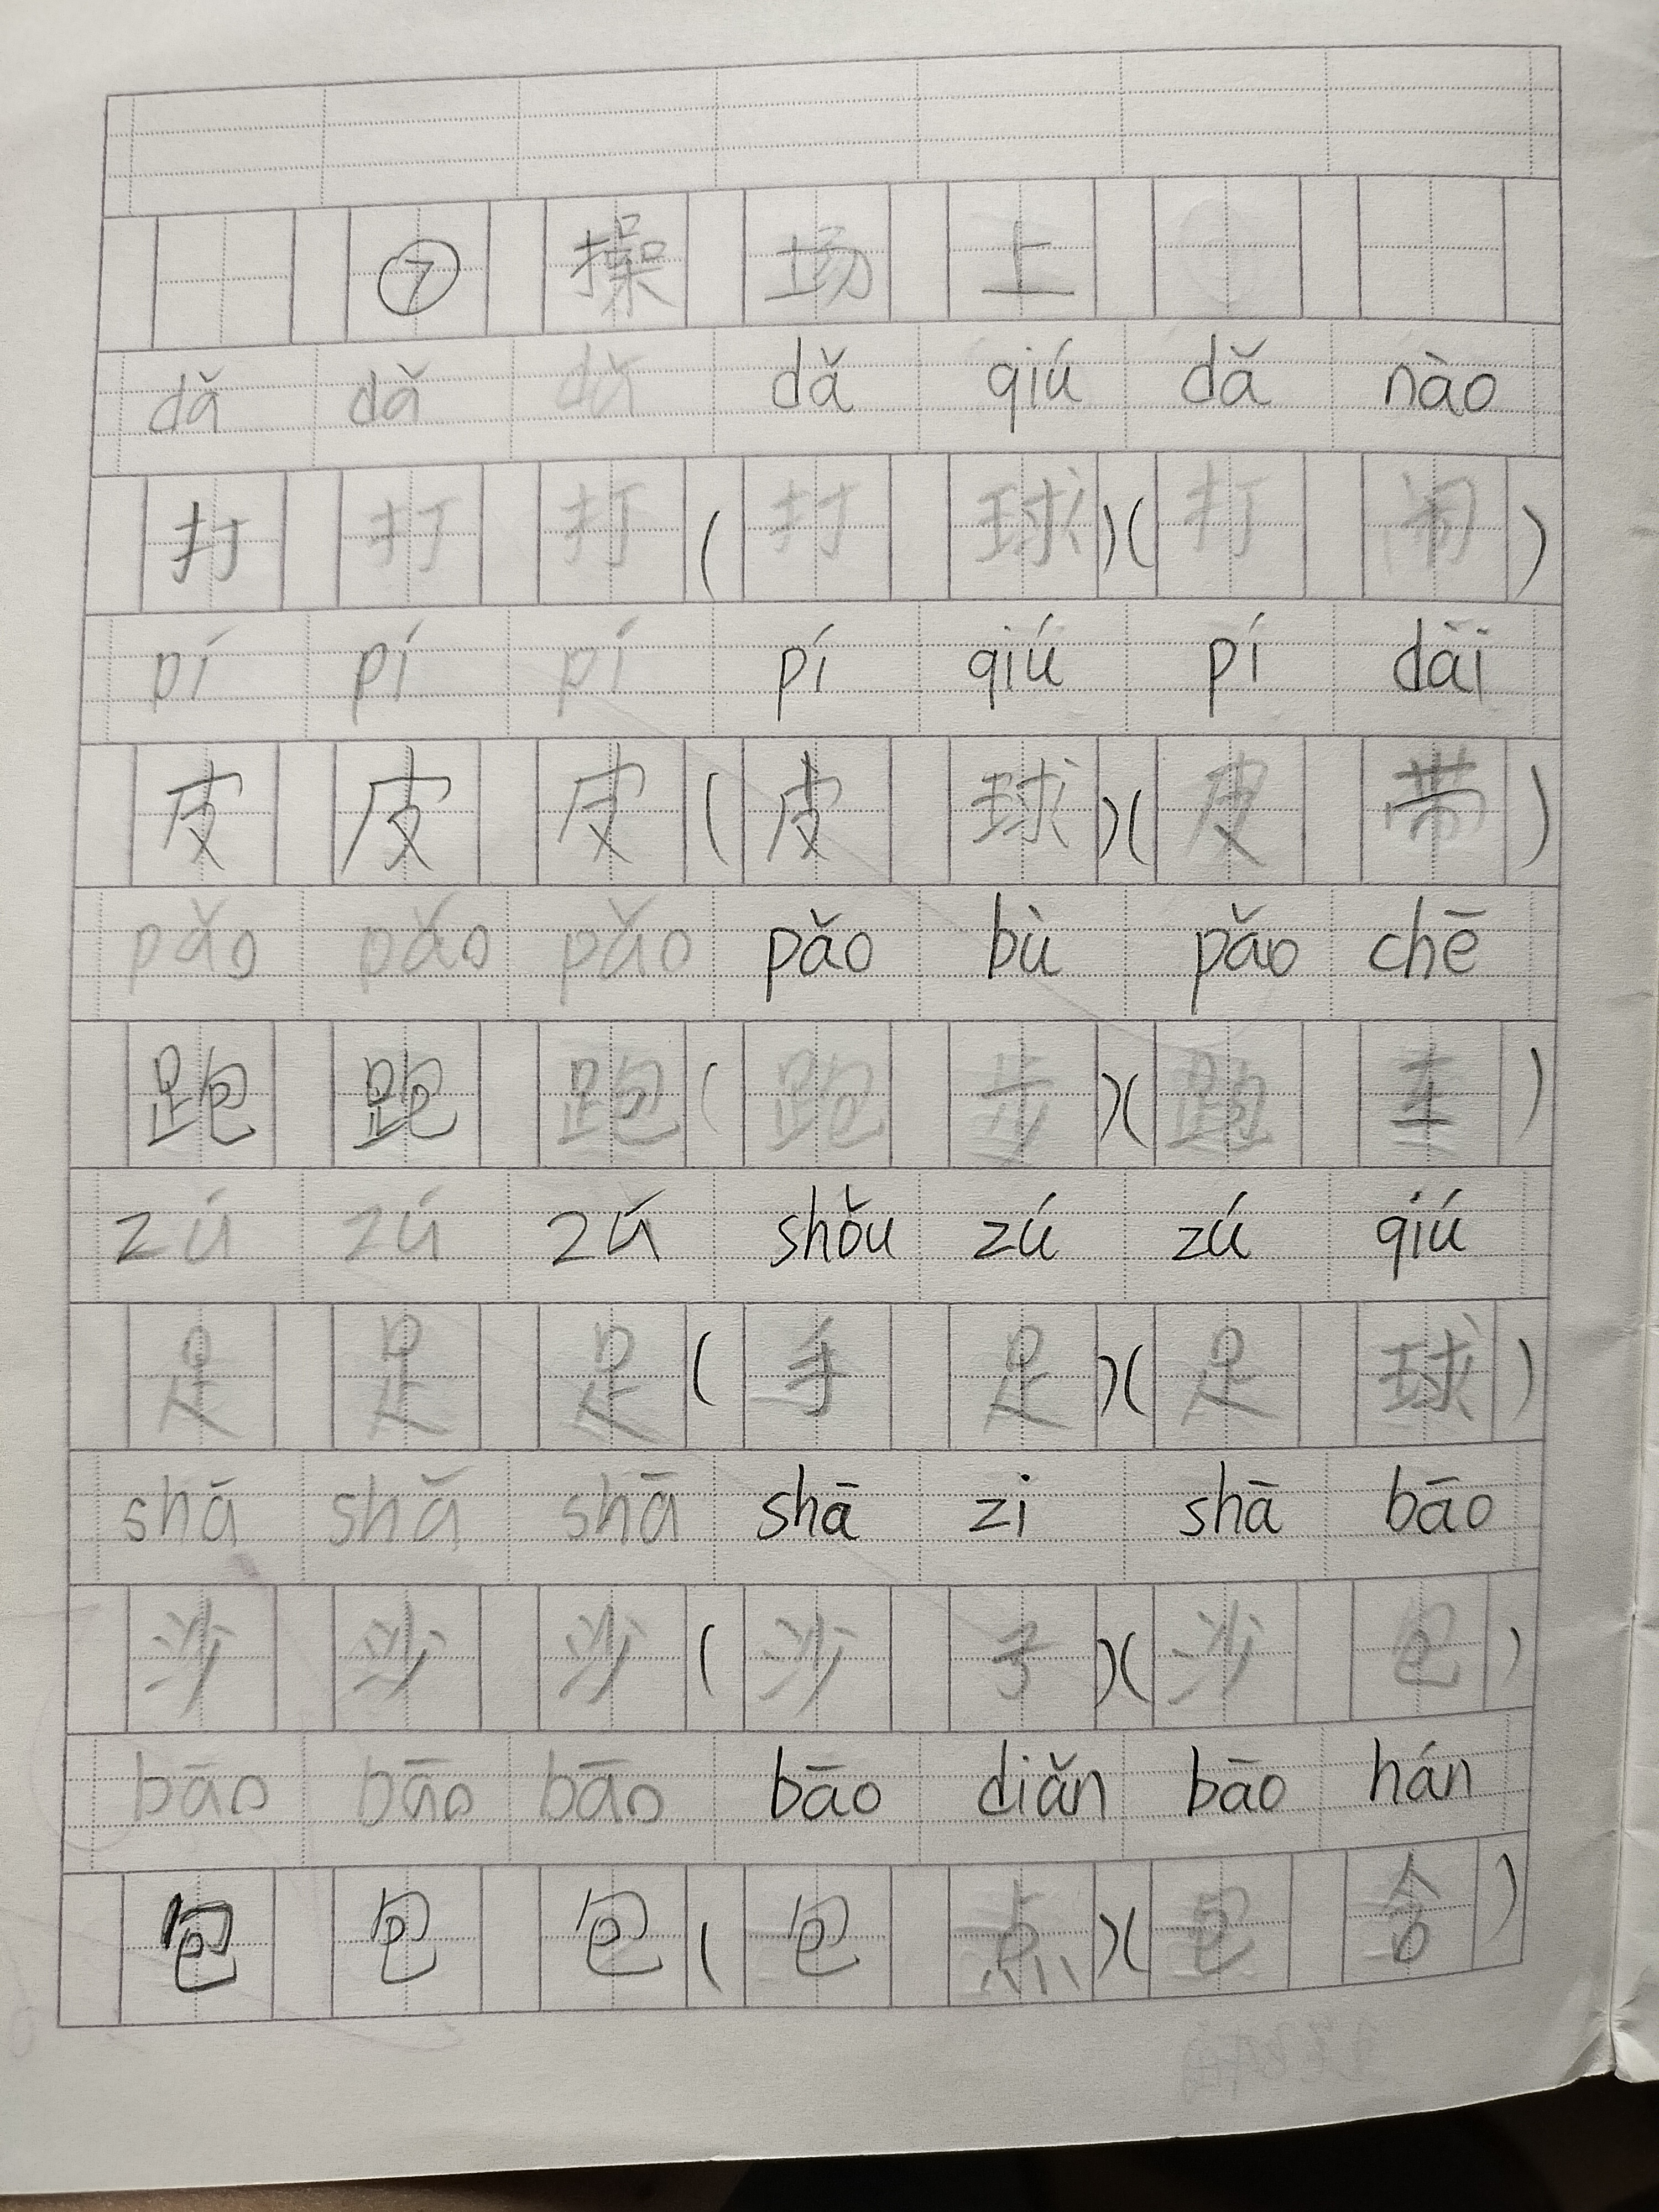 ⑦ 操 场 上
dǎ dǎ dǎ dǎ qiú dǎ nào
打 打 打 ( 打 球 )( 打 闹 )
pí pí pí pí qiú pí dài
皮 皮 皮 ( 皮 球 )( 皮 带 )
pǎo pǎo pǎo pǎo bù pǎo chē
跑 跑 跑 ( 跑 步 )( 跑 车 )
zú zú zú shǒu zú zú qiú
足 足 足 ( 手 足 )( 足 球 )
shā shā shā shā zi shā bāo
沙 沙 沙 ( 沙 子 )( 沙 包 )
bāo bāo bāo bāo diǎn bāo hán
包 包 包 ( 包 点 )( 包 含 )